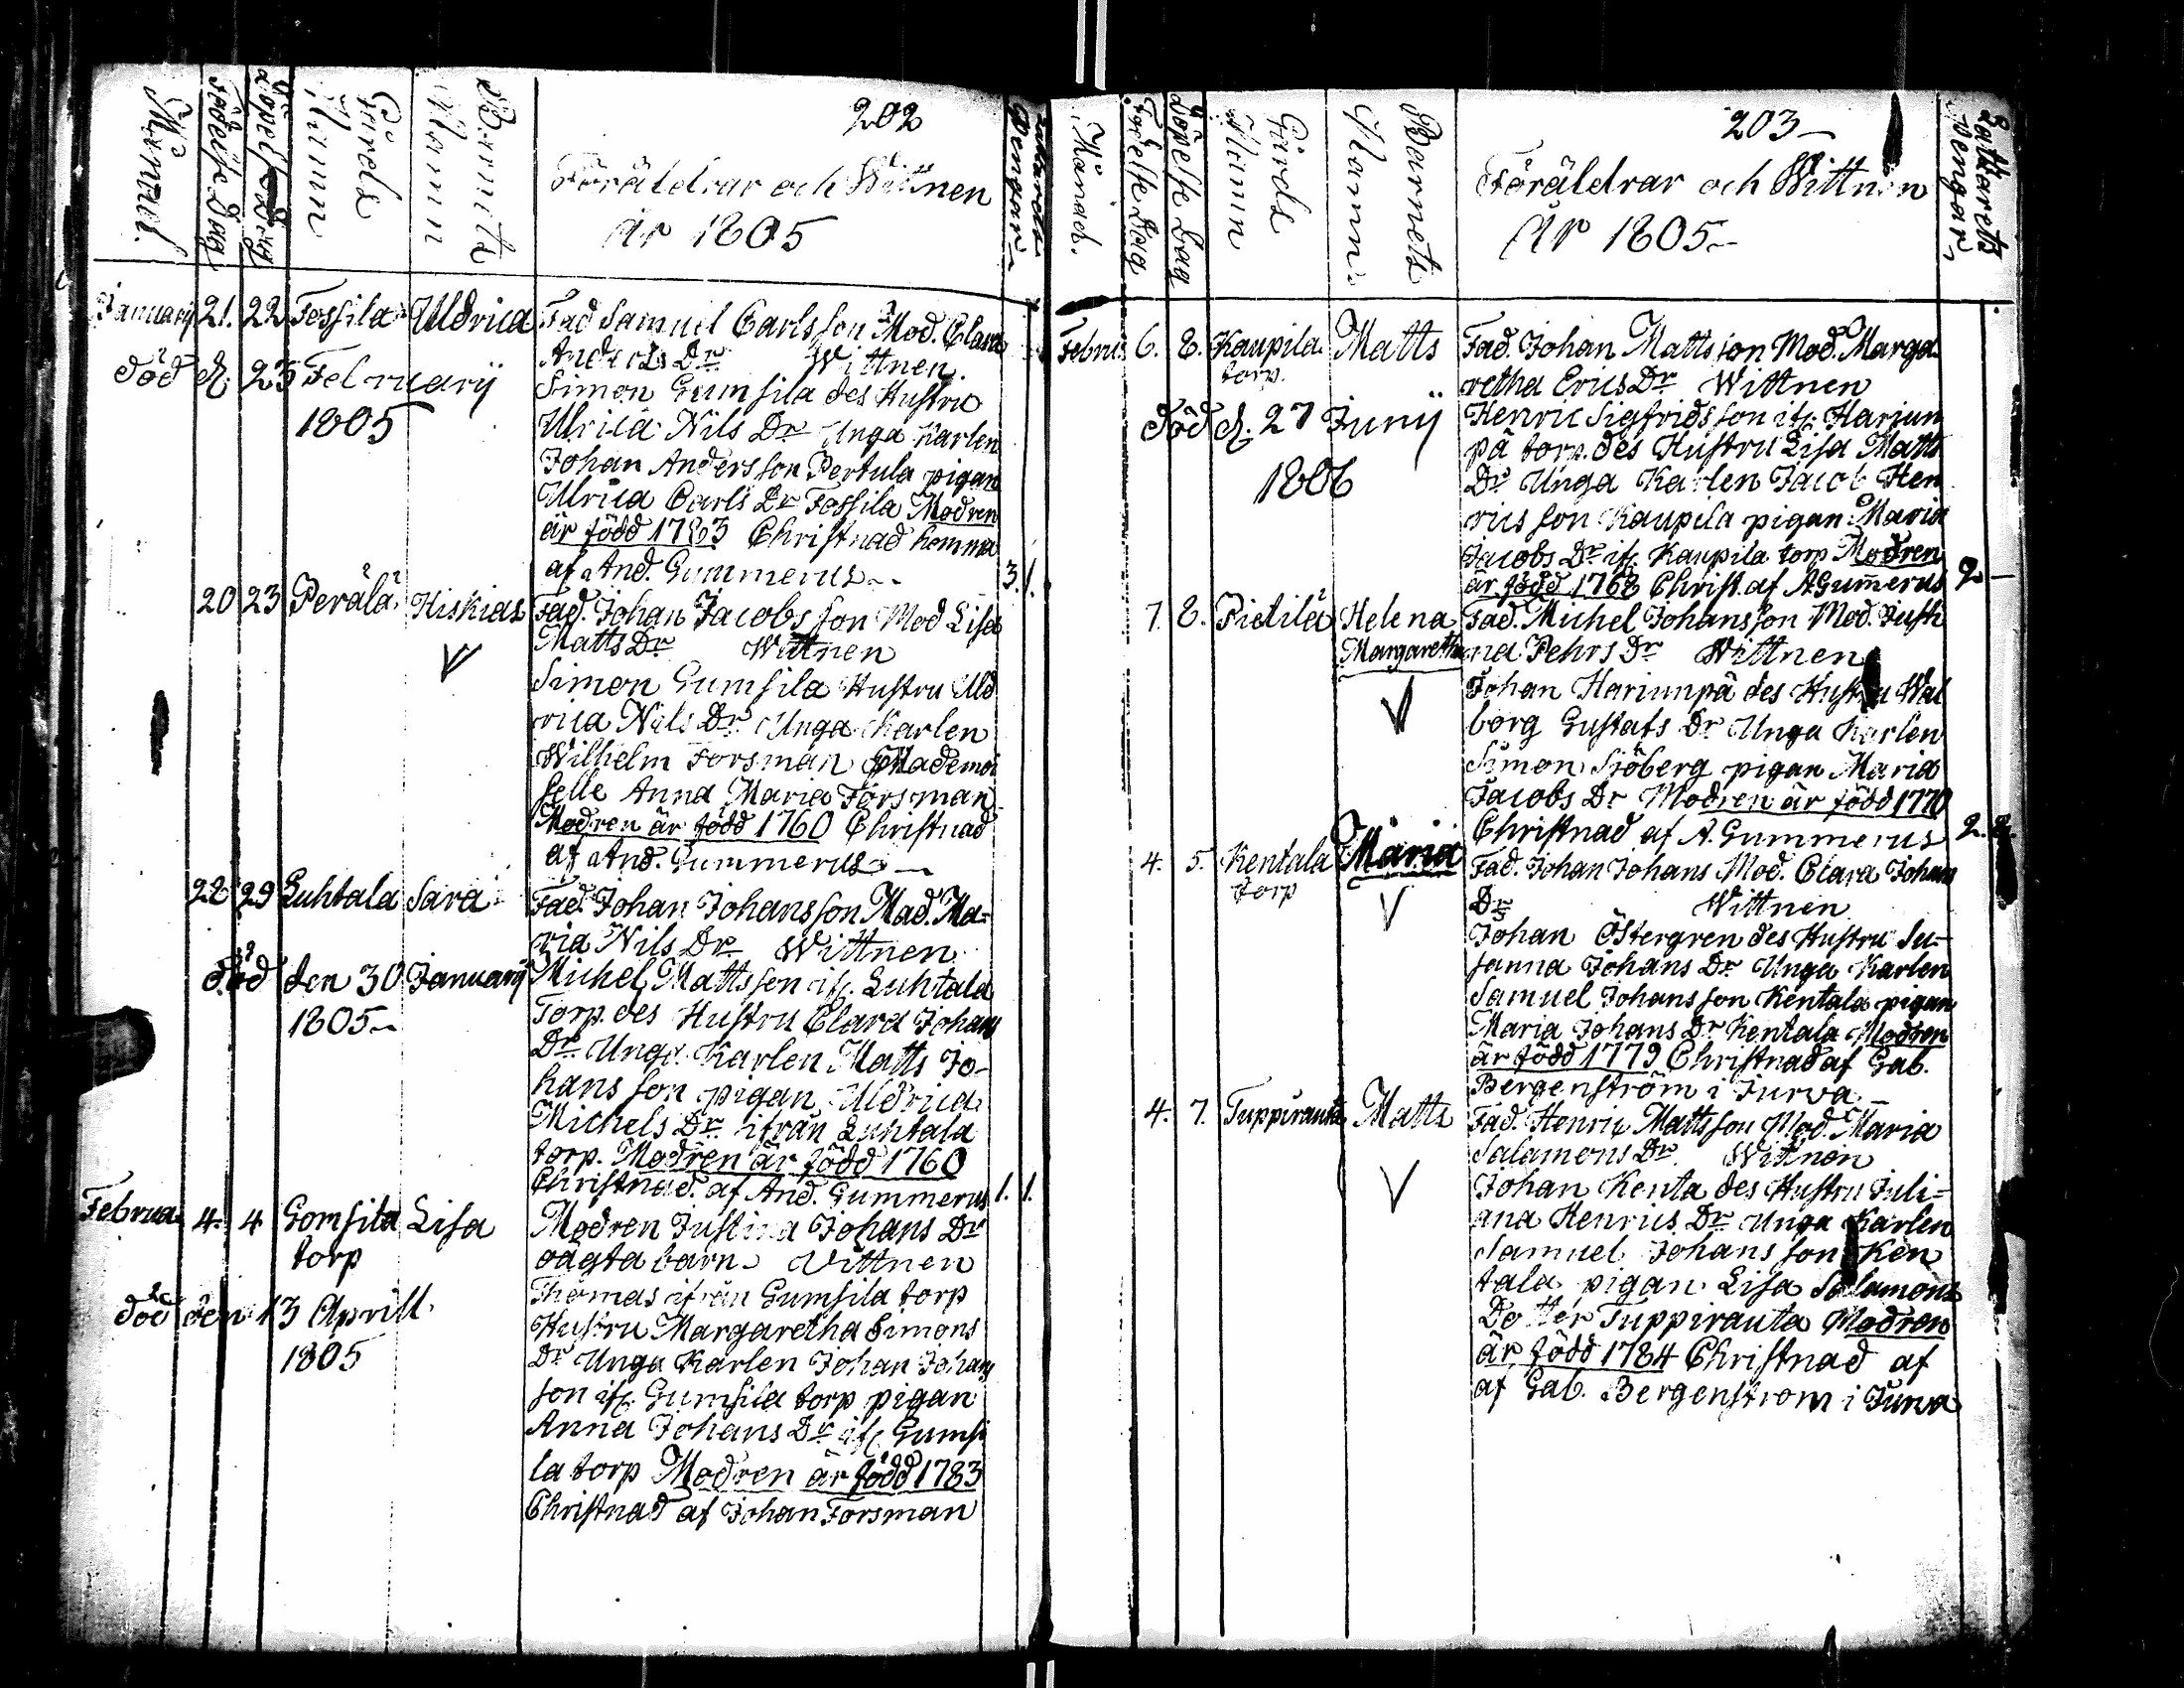 202
Månad.
Födelse Dag
Döpelse Dag
Gårds
Namn
Barnets
Namn
Föräldrar och Wittnen
År 1805
Lasarets
Pengar
January 21. 22 Fossila Uldrica Fad Samuel Carlsson Mod. Clara
Anders Dr Wittnen
död d. 23 Februarij
Simon Gumsila des Hustru
1805
Ulrica Nils Dr Unga Karlen
Johan Andersson Pertula pigan
Ulrica Carls Dr Fossila Modren
är född 1783 Christnad hemma
af And. Gummerus 3. 1.
20 23 Perälä Hiskias Fad. Johan Jacobsson Mod Lisa
Matts Dr Wittnen
Simon Gumsila Hustru Uld
rica Nils Dr Unga Karlen
Wilhelm Forsman Mademoi
selle Anna Maria Forsman
Modren är född 1760 Christnad
af And. Gummerus
28 29 Luhtala Sara Fad. Johan Johansson Mad. Ma-
ria Nils Dr Wittnen
död den 30 January Michel Mattsson if. Luhtala
1805 Torp. des Hustru Clara Johans
Dr Unga Karlen Matts Jo-
hansson pigan Uldrica
Michels Dr ifrån Luhtala
torp. Modren är född 1760
Christnad. af And. Gummerus 1. 1.
Februa 4. 4 Gomsila Lisa Modren Justina Johans Dr
torp oägta barn Wittnen
Thomas ifrån Gumsila torp
död den 13 Aprill.
Hustru Margaretha Simons
1805
Dr Unga Karlen Johan Johans
son if. Gumsila torp pigan
Anna Johans Dr if. Gumsi
la torp Modren är född 1783
Christnad af Johan Forsman
203
Månad.
Födelse Dag
Döpelse Dag
Gårds
Namn
Barnets
Namn
Föräldrar och Wittnen
År 1805
Lasarets
Pengar
Febru 6. 8. Kaupila Matts Fad. Johan Mattsson Mod. Marga
torp. retha Erics Dr Wittnen
död d. 27 Junij Henric Sigfridsson if. Harjun
på torp. des Hustru Lisa Matts
1806 Dr Unga Karlen Jacob Hen
ricsson Kaupila pigan Maria
Jacobs Dr if. Kaupila torp Modren
är född 1768 Christ. af A Gum̄erus 2
7. 8. Pietilä Helena Fad. Michel Johansson Mod. Justi
Margaretha na Pehrs Dr Wittnen
Johan Hariunpä des Hustru Wal
borg Gustafs Dr Unga Karlen
Simon Siöberg pigan Maria
Jacobs Dr Modren är född 1770
Christnad af A. Gummerus 2. 2.
4. 5. Kentala Maria Fad. Johan Johans Mod. Clara Johans
torp Dr Wittnen
Johan Östergren des Hustru Su-
sanna Johans Dr Unga Karlen
Samuel Johansson Kentala pigan
Maria Johans Dr Kentala Modren
är född 1779 Christnad af Gab.
Bergenström i Jurva
4. 7. Tuppirauta Matts Fad. Henric Mattsson Mod. Maria
Salamons Dr Wittnen
Johan Kenta des Hustru Juli-
ana Henrics Dr Unga Karlen
Samuel Johansson Ken
tala pigan Lisa Salamons
Dotter Tuppirauta Modren
är född 1784 Christnad af
af Gab. Bergenstrom i Jurva